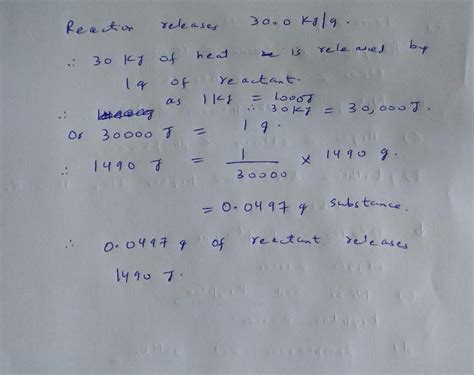 Reaction releases 30.0 KJ/g.
∴ 30 KJ of heat is released by
1g of reactant.
as 1KJ = 1000J
∴ 30KJ = 30,000J.
Or 30000 J = 1 g.
∴ 1490 J = 1/30000 × 1490 g.
= 0.0497 g substance.
∴ 0.0497 g of reactant releases
1490 J.